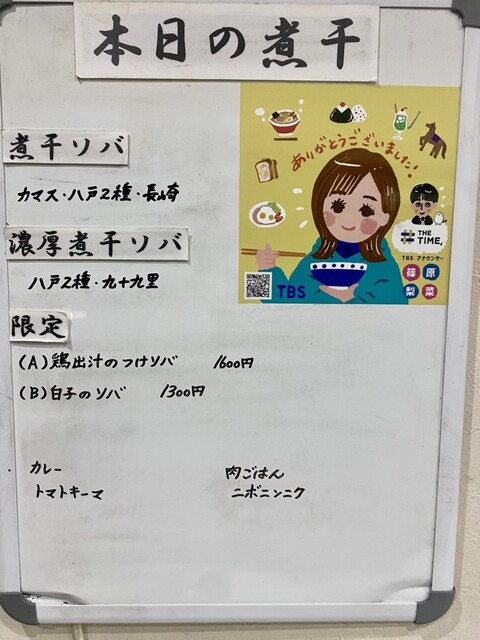 本日の煮干
ありがとうございました!
煮干ソバ
カマス・八戸2種・長崎
# THE TIME,
TBS アナウンサー
篠原
梨菜
TBS
濃厚煮干ソバ
八戸2種・九十九里
限定
(A)鶏出汁のつけソバ 1600円
(B)白子のソバ 1300円
カレー 肉ごはん
トマトキーマ ニボニンニク